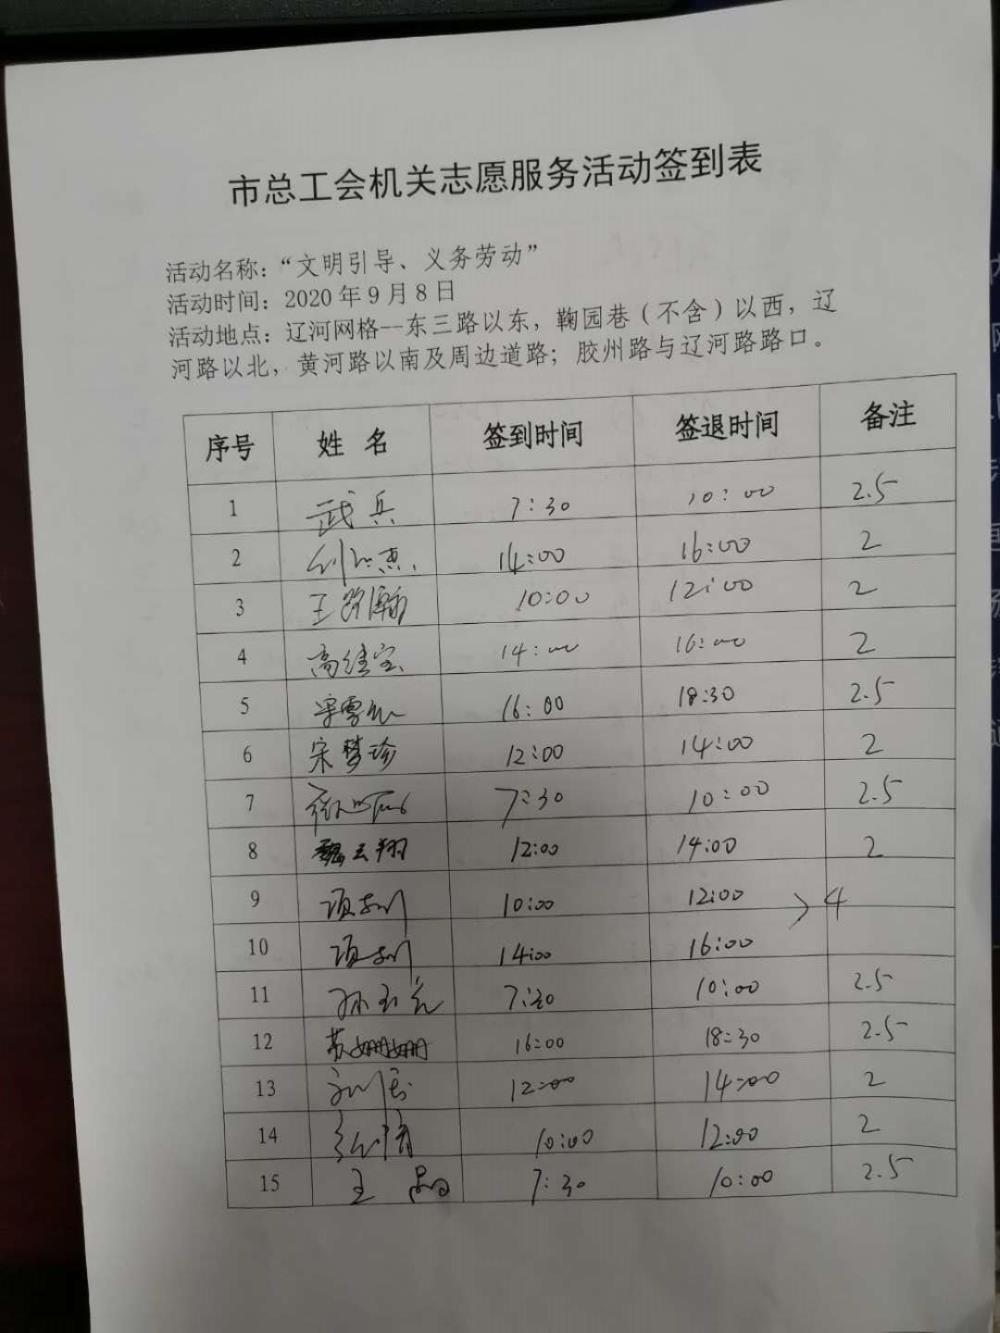 市总工会机关志愿服务活动签到表
活动名称：“文明引导、义务劳动”
活动时间：2020年9月8日
活动地点：辽河网格--东三路以东，鞠园巷（不含）以西，辽
河路以北，黄河路以南及周边道路；胶州路与辽河路路口。
序号 姓 名 签到时间 签退时间 备注
1 武兵 7:30 10:00 2.5
2 14:00 16:00 2
3 10:00 12:00 2
4 14:00 16:00 2
5 16:00 18:30 2.5
6 宋梦珍 12:00 14:00 2
7 7:30 10:00 2.5
8 魏云翔 12:00 14:00 2
9 10:00 12:00 4
10 14:00 16:00
11 7:30 10:00 2.5
12 苏姗姗 16:00 18:30 2.5
13 12:00 14:00 2
14 10:00 12:00 2
15 王 晶 7:30 10:00 2.5